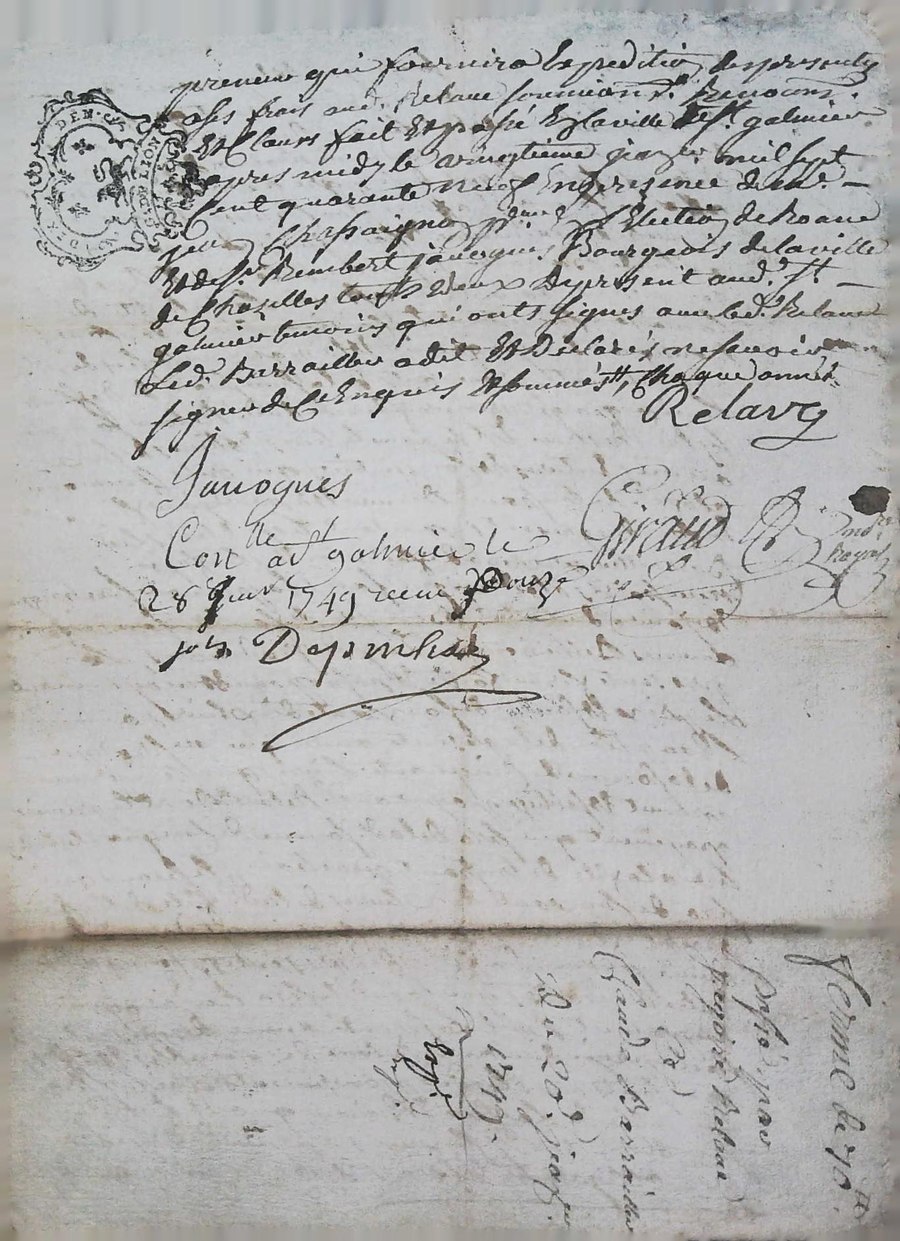 preneur qui fournira Expedition des presentes
a ses frais aud. Relave soumions. Renoons.
Et Claus fait Et passé En la ville de St. galmier
apres midy le vingtieme janvier mil sept
Cent quarante neuf En presence de me.
jean Chassaigne En l'Election de Roane
Et de Sr. Rembert janognes Bourgeois de la ville
de Chazelles tous Deux De present aud. St.
galmier temoins qui onts signés avec led. Relave
Led. Barrailler a dit Et Declarés ne savoir
signer de Ce Enquis Et sommés
Relave
Janognes
Giraud
no.re Royal
Conlle a St galmier le
28 janv 1749 recu Douze
sols
DEN.
LION
ferme de 70.tt
Passé par
Relave
a
Claude Barrailler
Du 20.e janv.
1749.
Exp.